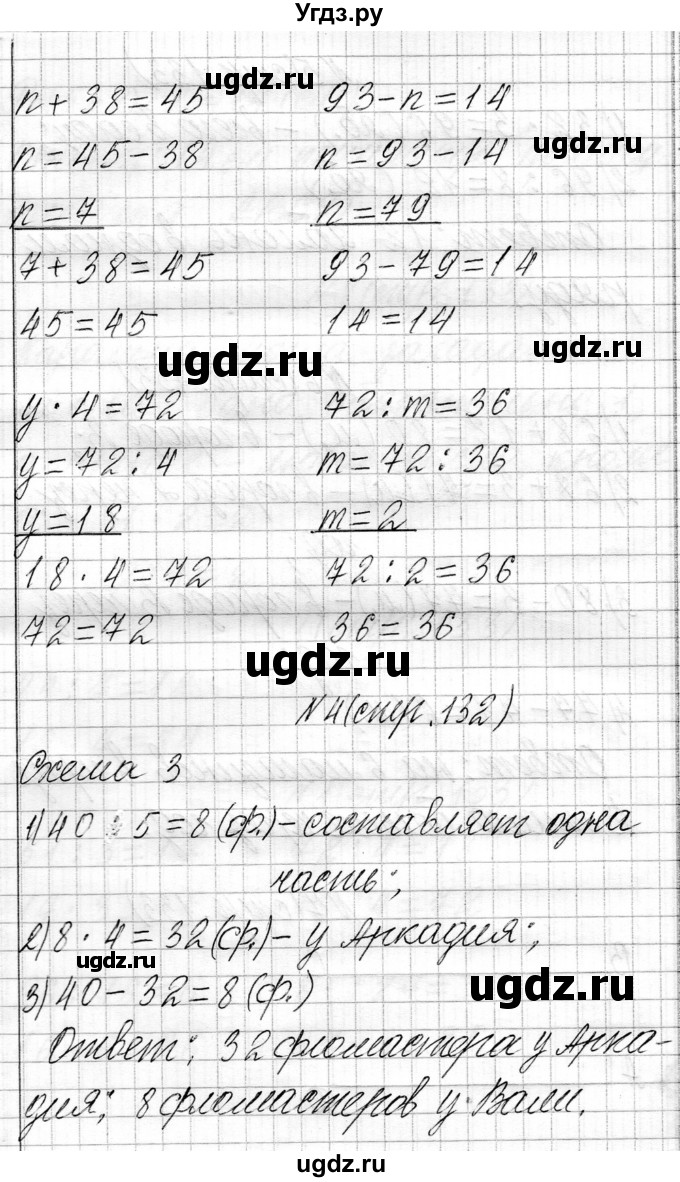 Угдз.ру
ugdz.ru
n + 38 = 45 93 - n = 14
ugdz.ru
n = 45 - 38 n = 93 - 14
n = 7 n = 79
7 + 38 = 45 93 - 79 = 14
45 = 45 14 = 14
ugdz.ru ugdz.ru
y · 4 = 72 72 : m = 36
y = 72 : 4 m = 72 : 36
y = 18 m = 2
18 · 4 = 72 72 : 2 = 36
72 = 72 36 = 36
ugdz.ru
N 4 (стр. 132)
Схема 3
1) 40 : 5 = 8 (ф.) - составляет одна
часть;
2) 8 · 4 = 32 (ф.) - у Аркадия;
ugdz.ru
3) 40 - 32 = 8 (ф.)
ugdz.ru
Ответ: 32 фломастера у Арка-
дия; 8 фломастеров у Вали.
ugdz.ru